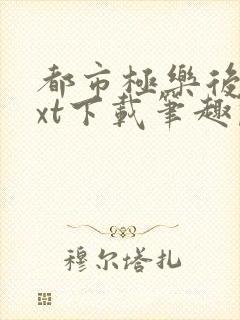 都市極樂後
xt下載筆趣
穆尔塔扎